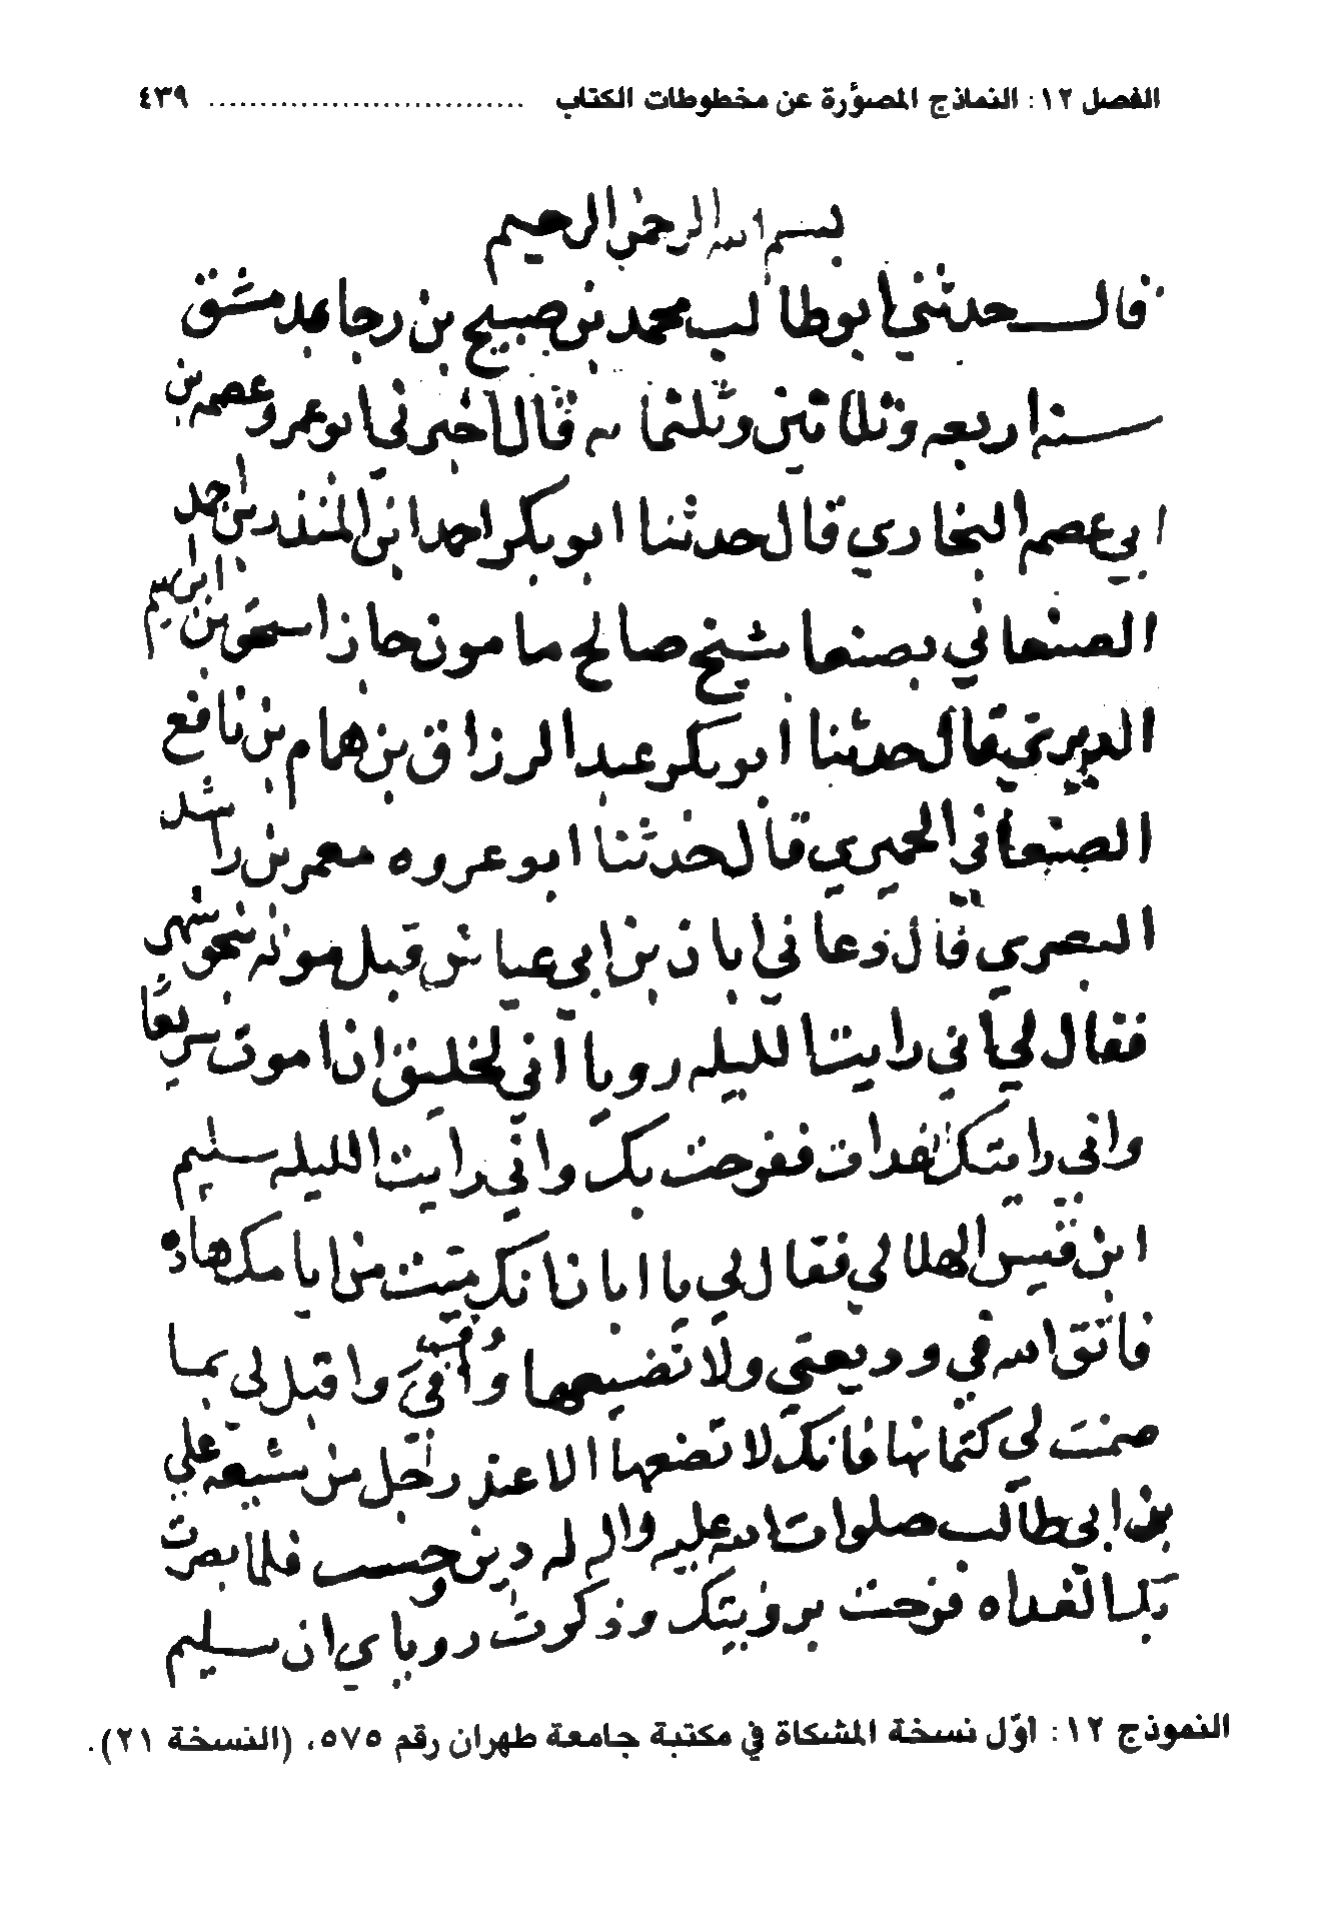 الفصل ١٢: النماذج المصوَّرة عن مخطوطات الكتاب .............................. ٤٣٩
بسم الله الرحمن الرحيم
قال حدثني ابو طالب محمد بن صبيح بن رجا بدمشق
سنه اربعه وثلاثين وثلثمائه قال اخبرني ابو عمرو عصمه بن
ابي عصمه البخاري قال حدثنا ابو بكر احمد ابن المنذر بن احمد
الصنعاني بصنعا شيخ صالح مامون جاز اسحق بن ابراهيم
الدبري قال حدثنا ابو بكر عبد الرزاق بن همام بن نافع
الصنعاني الحميري قال حدثنا ابو عروه معمر بن راشد
البصري قال دعاني ابان بن ابي عياش قبل موته بنحو شهر
فقال لي اني رايت الليله رويا اني لخليق ان اموت سريعا
واني رايتك الغداة ففرحت بك واني رايت الليله سليم
ابن قيس الهلالي فقال لي يا ابان انك ميت من ايامك هاذه
فاتق الله في وديعتي ولا تضيعها وافي واقبل لي بما
ضمنت لي كتمانها فانك لا تضعها الا عند رجل من شيعه علي
بن ابي طالب صلوات الله عليه واله له دين وحسب فلما بصرت
بك الغداه فرحت برويتك وذكرت روياي ان سليم
النموذج ١٢: اوّل نسخة المشكاة في مكتبة جامعة طهران رقم ٥٧٥، (النسخة ٢١).